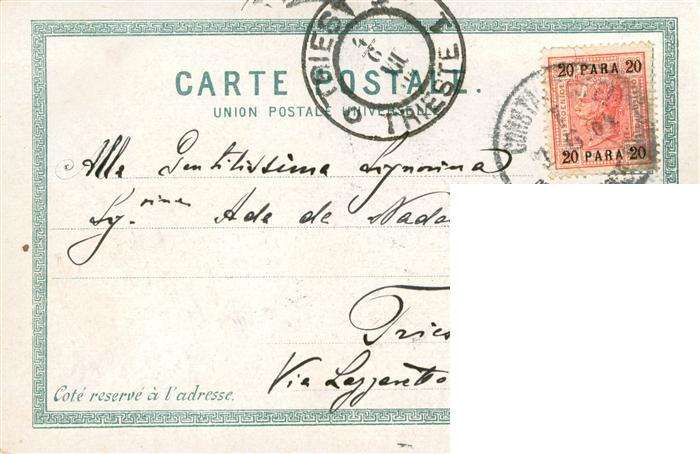 TRIEST
TRIESTE 1
CARTE POSTALE.
UNION POSTALE UNIVERSELLE
20 PARA 20
20 PARA 20
CONSTA
Alla Gentilissima Signorina
Sg.rina Ada de Nada
Tries
Via Lazzaretto
Coté reservé à l'adresse.